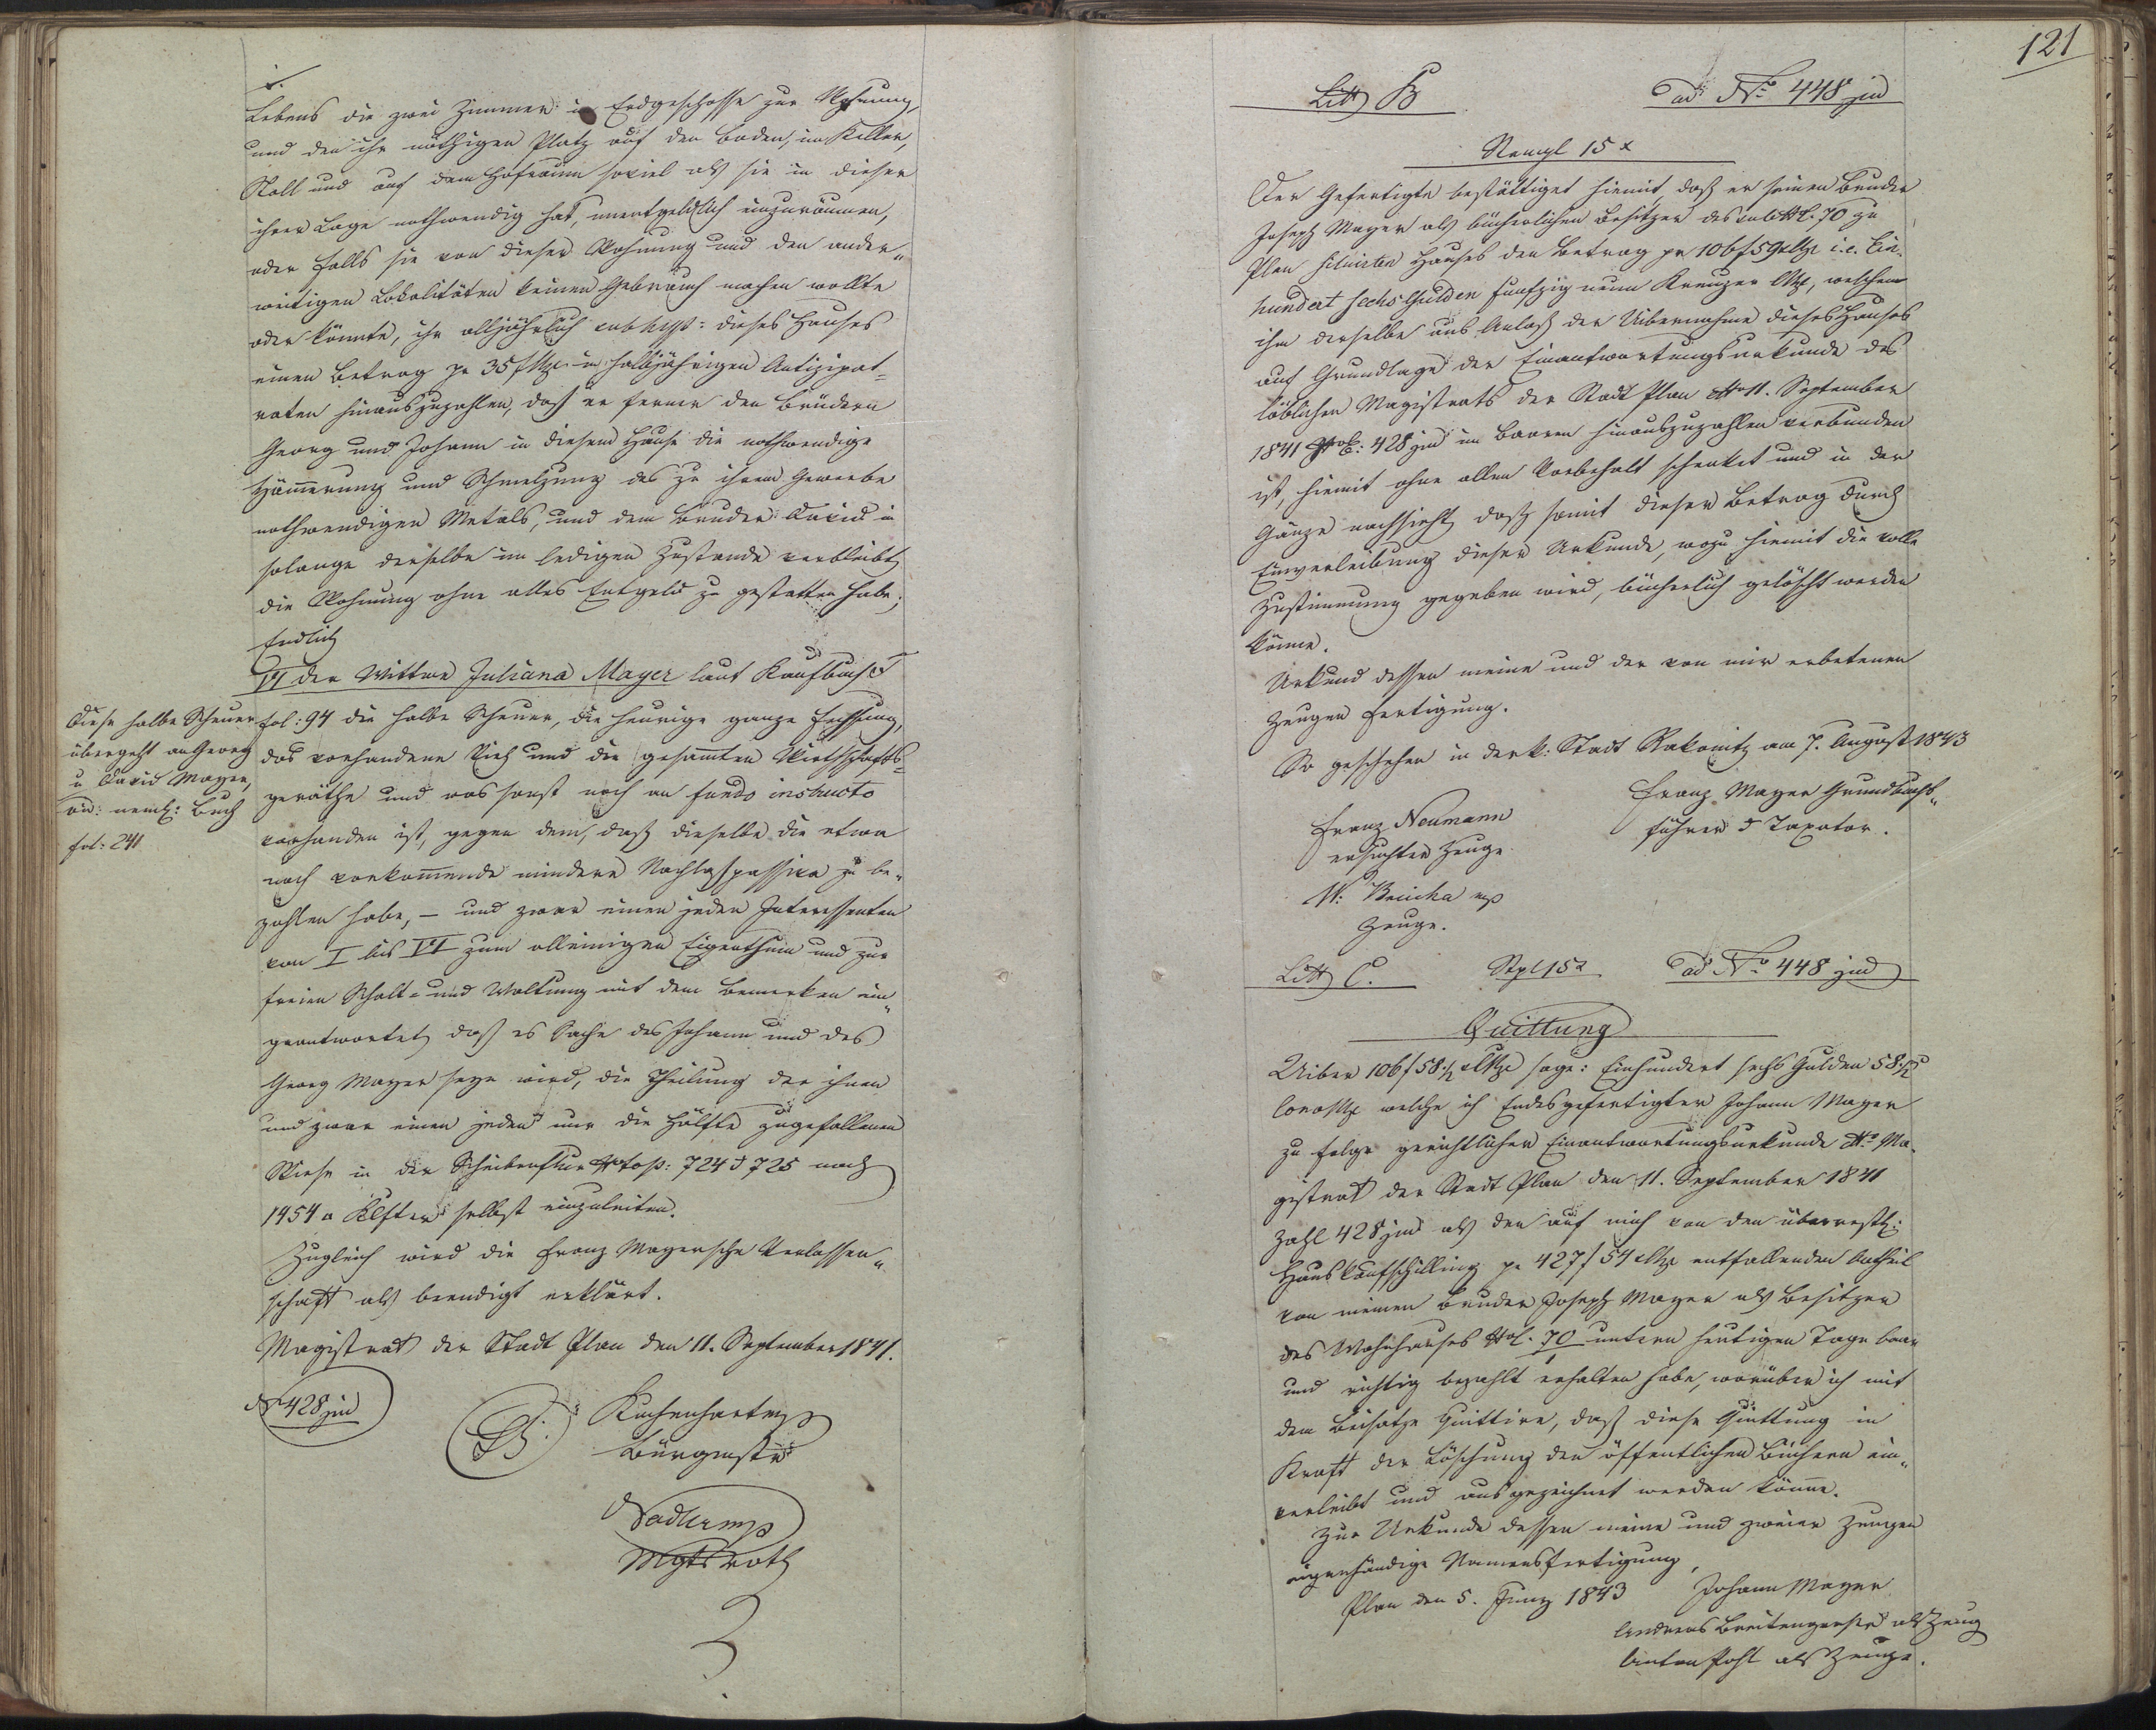 Lebens die zwei Zimmer im Erdgeschosse zur Wohnung,
und den ihr nöthigen Platz auf den Boden, im Keller,
Stall und auf dem Hofraum soviel als sie in dieser
ihrer Lage nothwendig hat, unentgeldlich einzuräumen,
oder falls sie von dieser Wohnung und den ander„
weitigen Lokalitäten keinen Gebrauch machen wollte
oder könnte, ihr alljährlich dieses Hauses
einen Betrag pr 35 f CMze in halbjährigen Antizipat=
raten hinauszuzahlen, daß er ferner den Brüdern
Georg und Johann in diesem Hause die nothwendige
Hämerung und Schmelzung des zu ihrem Gewerbe
nothwendigen Metals, und dem Bruder David in
solange derselbe im ledigen Zustande verbleibt,
die Wohnung ohne alles Entgeld zu gestatten habe;
Endlich
VI der Wittwe Juliana Mayer laut Kaufbuchs
fol: 94 die halbe Scheuer, die heurige ganze Fechsung,
das vorhandene Vieh und die gesamten Wirthschafts=
geräthe und was sonst noch an fundo instructo
vorhanden ist, gegen dem, daß dieselbe die etwa
noch vorkomende mindere Nachlaßpassiva zu be„
zahlen habe, – und zwar einen jeden Interessenten
von I bis VI zum alleinigen Eigenthum und zur
freien Schalt= und Waltung mit dem Bemerken ein„
geantwortet, daß es Sache des Johann und des
Georg Mayer seyn wird, die Theilung der ihnen
und zwar einen jeden nur die Hälfte zugefallenen
Wiese in der Scheibenflur Nro top: 724 & 725 nach
1454 □ Klafter selbst einzuleiten.
Zugleich wird die Franz Mayersche Verlassen„
schaft als beendigt erklärt.
Magistrat der Stadt Plan den 11. September 1841.
Nr 428 jud
Bürgmstr
Sadler mp
Mgts rath
Diese halbe Scheuer
übergeht an Georg
u David Mayer,
vid: neml: Buch
fol: 241
121
Litt B
ad Nro 448 jud
Stempl 15 x
Der Gefertigte bestättiget hiemit, daß er seinen Bruder
Joseph Mayer als bücherlichen Besitzer des sub NC. 70 zu
Plan situirten Hauses den Betrag pr 106 f 59 x CMze i.e. Ein„
hundert sechs Gulden fünfzig neun Kreuzer CMze, welchen
ihm derselbe aus Anlaß der Uibernahme dieses Hauses
auf Grundlage der Einantwortungsurkunde des
löblichen Magistrats der Stadt Plan dto 11. September
1841 428 jud im Baaren hinauszuzahlen verbunden
ist, hiemit ohne allen Vorbehalt schenket und in der
Gänze nachsieht, daß somit dieser Betrag durch
Einverleibung dieser Urkunde, wozu hiemit die volle
Zustimmung gegeben wird, bücherlich gelöscht werden
könne.
Urkund dessen meine und der von mir erbetenen
Zeugen Fertigung.
So geschehen in der k: Stadt Rakonitz am 7. August 1843
Franz Mayer Grundbuchs„
führer & Taxator.
Franz Neumann
ersuchter Zeuge
Zeuge.
Litt C.
Stpl 15 x
ad Nro 448 jud
Quittung
Uiber 106 f 58 ½ x CMze sage: Einhundert sechs Gulden 58 ½
ConvMze welche ich Endesgefertigter Johann Mayer
zu folge gerichtlicher Einantwortungsurkunde dto Ma„
gistrat der Stadt Plan den 11. September 1841
Zahl 428 jud als den auf mich von den überrestl:
Hauskaufschilling pr 427 f 54 CMze entfallenden Antheil
von meinen Bruder Joseph Mayer als Besitzer
des Wohnhauses NC. 70 unterm heutigen Tage baar
und richtig bezahlt erhalten habe, worüber ich mit
dem Beisatze quittire, daß diese Quittung in
Kraft der Löschung den öffentlichen Büchern ein„
verleibt und ausgezeichnet werden könne.
Zur Urkunde dessen meine und zweier Zeugen
eigenhändige Namensfertigung,
Plan den 5. Juny 1843
Johann Mayer
Andreas als Zeug
Anton Pohl als Zeuge.